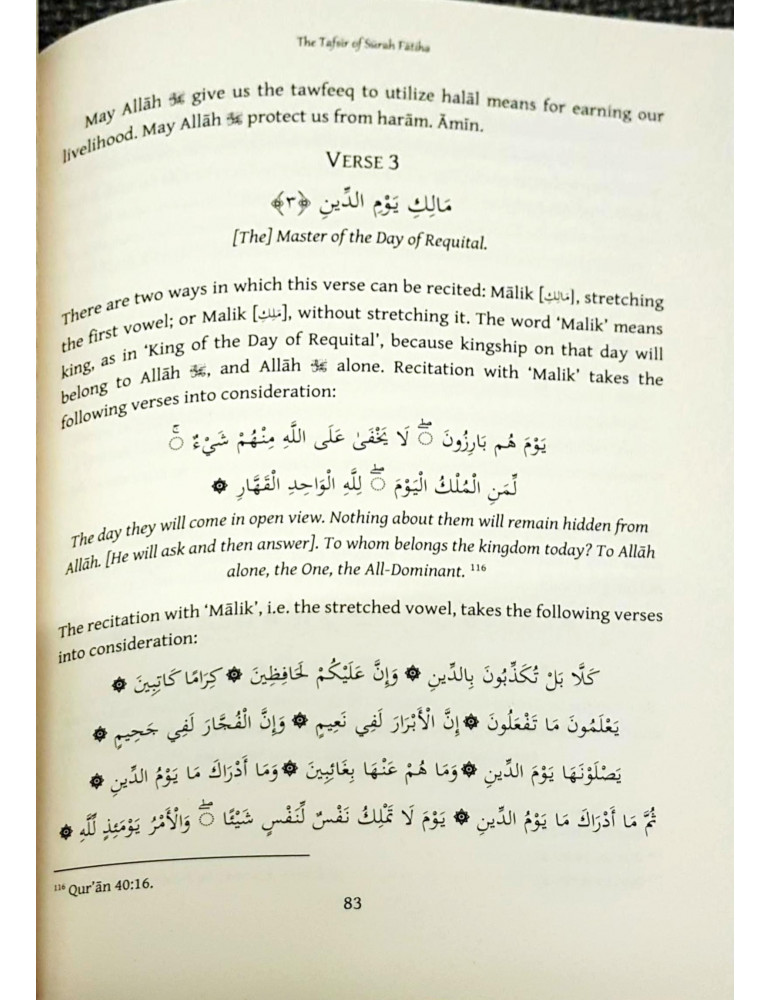 The Tafsir of Sūrah Fātiha
May Allāh ﷻ give us the tawfeeq to utilize halāl means for earning our
livelihood. May Allāh ﷻ protect us from harām. Āmīn.
VERSE 3
مَالِكِ يَوْمِ الدِّينِ ﴿٣﴾
[The] Master of the Day of Requital.
There are two ways in which this verse can be recited: Mālik [مَالِكِ], stretching
the first vowel; or Malik [مَلِكِ], without stretching it. The word ‘Malik’ means
king, as in ‘King of the Day of Requital’, because kingship on that day will
belong to Allāh ﷻ, and Allāh ﷻ alone. Recitation with ‘Malik’ takes the
following verses into consideration:
يَوْمَ هُم بَارِزُونَ ۖ لَا يَخْفَىٰ عَلَى اللَّهِ مِنْهُمْ شَيْءٌ ۚ
لِّمَنِ الْمُلْكُ الْيَوْمَ ۖ لِلَّهِ الْوَاحِدِ الْقَهَّارِ ۞
The day they will come in open view. Nothing about them will remain hidden from
Allāh. [He will ask and then answer]. To whom belongs the kingdom today? To Allāh
alone, the One, the All-Dominant. ¹¹⁶
The recitation with ‘Mālik’, i.e. the stretched vowel, takes the following verses
into consideration:
كَلَّا بَلْ تُكَذِّبُونَ بِالدِّينِ ۞ وَإِنَّ عَلَيْكُمْ لَحَافِظِينَ ۞ كِرَامًا كَاتِبِينَ ۞
يَعْلَمُونَ مَا تَفْعَلُونَ ۞ إِنَّ الْأَبْرَارَ لَفِي نَعِيمٍ ۞ وَإِنَّ الْفُجَّارَ لَفِي جَحِيمٍ ۞
يَصْلَوْنَهَا يَوْمَ الدِّينِ ۞ وَمَا هُمْ عَنْهَا بِغَائِبِينَ ۞ وَمَا أَدْرَاكَ مَا يَوْمُ الدِّينِ ۞
ثُمَّ مَا أَدْرَاكَ مَا يَوْمُ الدِّينِ ۞ يَوْمَ لَا تَمْلِكُ نَفْسٌ لِّنَفْسٍ شَيْئًا ۖ وَالْأَمْرُ يَوْمَئِذٍ لِّلَّهِ ۞
¹¹⁶ Qur’ān 40:16.
83